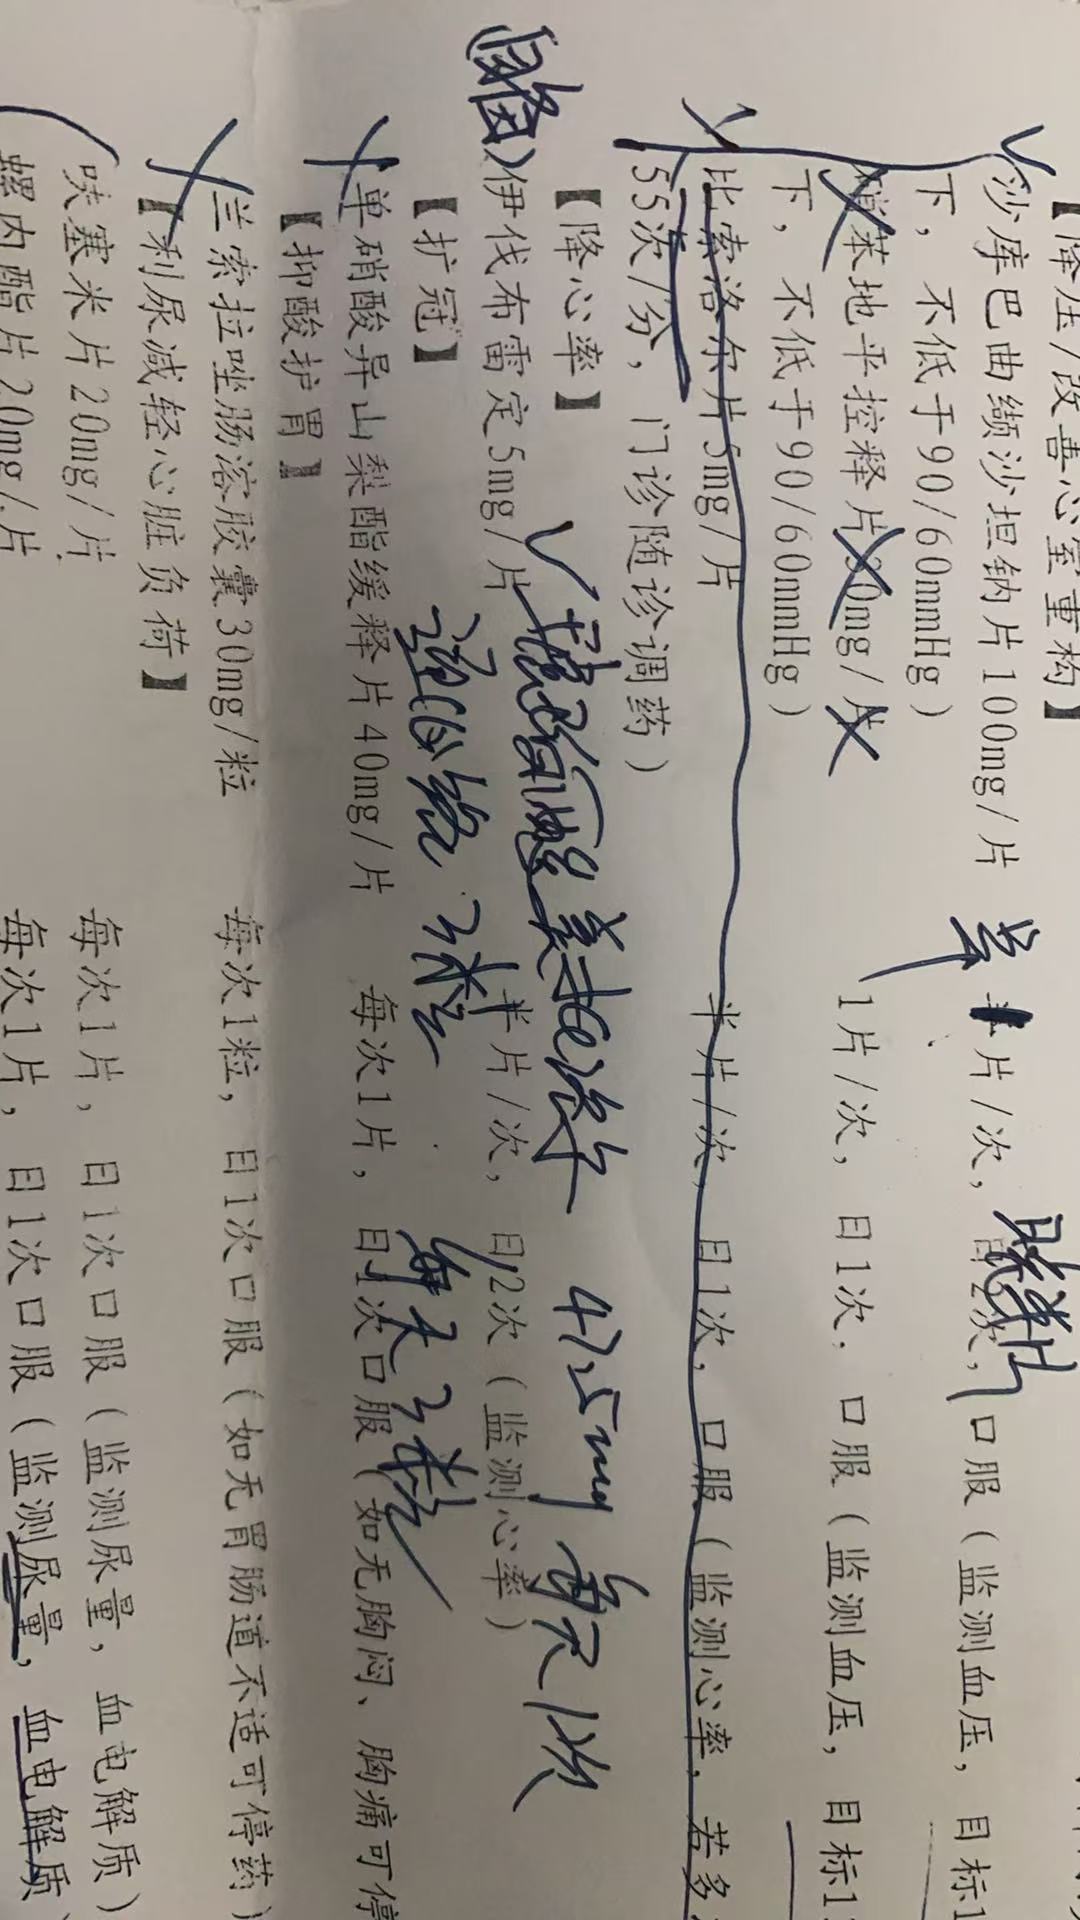 【降压/改善心室重构】
沙库巴曲缬沙坦钠片100mg/片 半 片/次， 口服（监测血压，目标1
下，不低于90/60mmHg）
硝苯地平控释片30mg/片 1片/次，日1次，口服（监测血压，目标1
下，不低于90/60mmHg）
比索洛尔片5mg/片 半片/次，日1次，口服（监测心率，若多
55次/分，门诊随诊调药）
【降心率】
琥珀酸美托洛尔 47.5mg 每天1次
伊代布雷定5mg/片 半片/次，日2次（监测心率）
【扩冠】
2粒 每天2次
单硝酸异山梨酯缓释片40mg/片 每次1片，日1次口服（如无胸闷、胸痛可停
【抑酸护胃】
兰索拉唑肠溶胶囊30mg/粒 每次1粒，日1次口服（如无胃肠道不适可停药）
【利尿减轻心脏负荷】
呋塞米片20mg/片 每次1片，日1次口服（监测尿量，血电解质）
螺内酯片20mg/片 每次1片，日1次口服（监测尿量，血电解质）